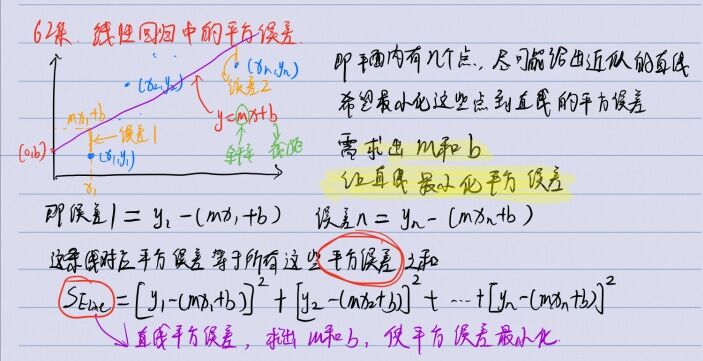 62集. 线性回归中的平方误差.
(x₂,y₂)
(xₙ,yₙ)
误差2
mx₁+b
误差1
y=mx+b
(0,b)
(x₁,y₁)
斜率
截距
x₁
即平面内有n个点，尽可能给出近似的直线
希望最小化这些点到直线的平方误差
需求出 m和b
让直线最小化平方误差
即误差1 = y₁-(mx₁+b) 误差n = yₙ-(mxₙ+b)
这条线对应平方误差等于所有这些平方误差之和
SE_Line = [y₁-(mx₁+b)]²+[y₂-(mx₂+b)]²+ … +[yₙ-(mxₙ+b)]²
直线平方误差，求出 m和b，使平方误差最小化.